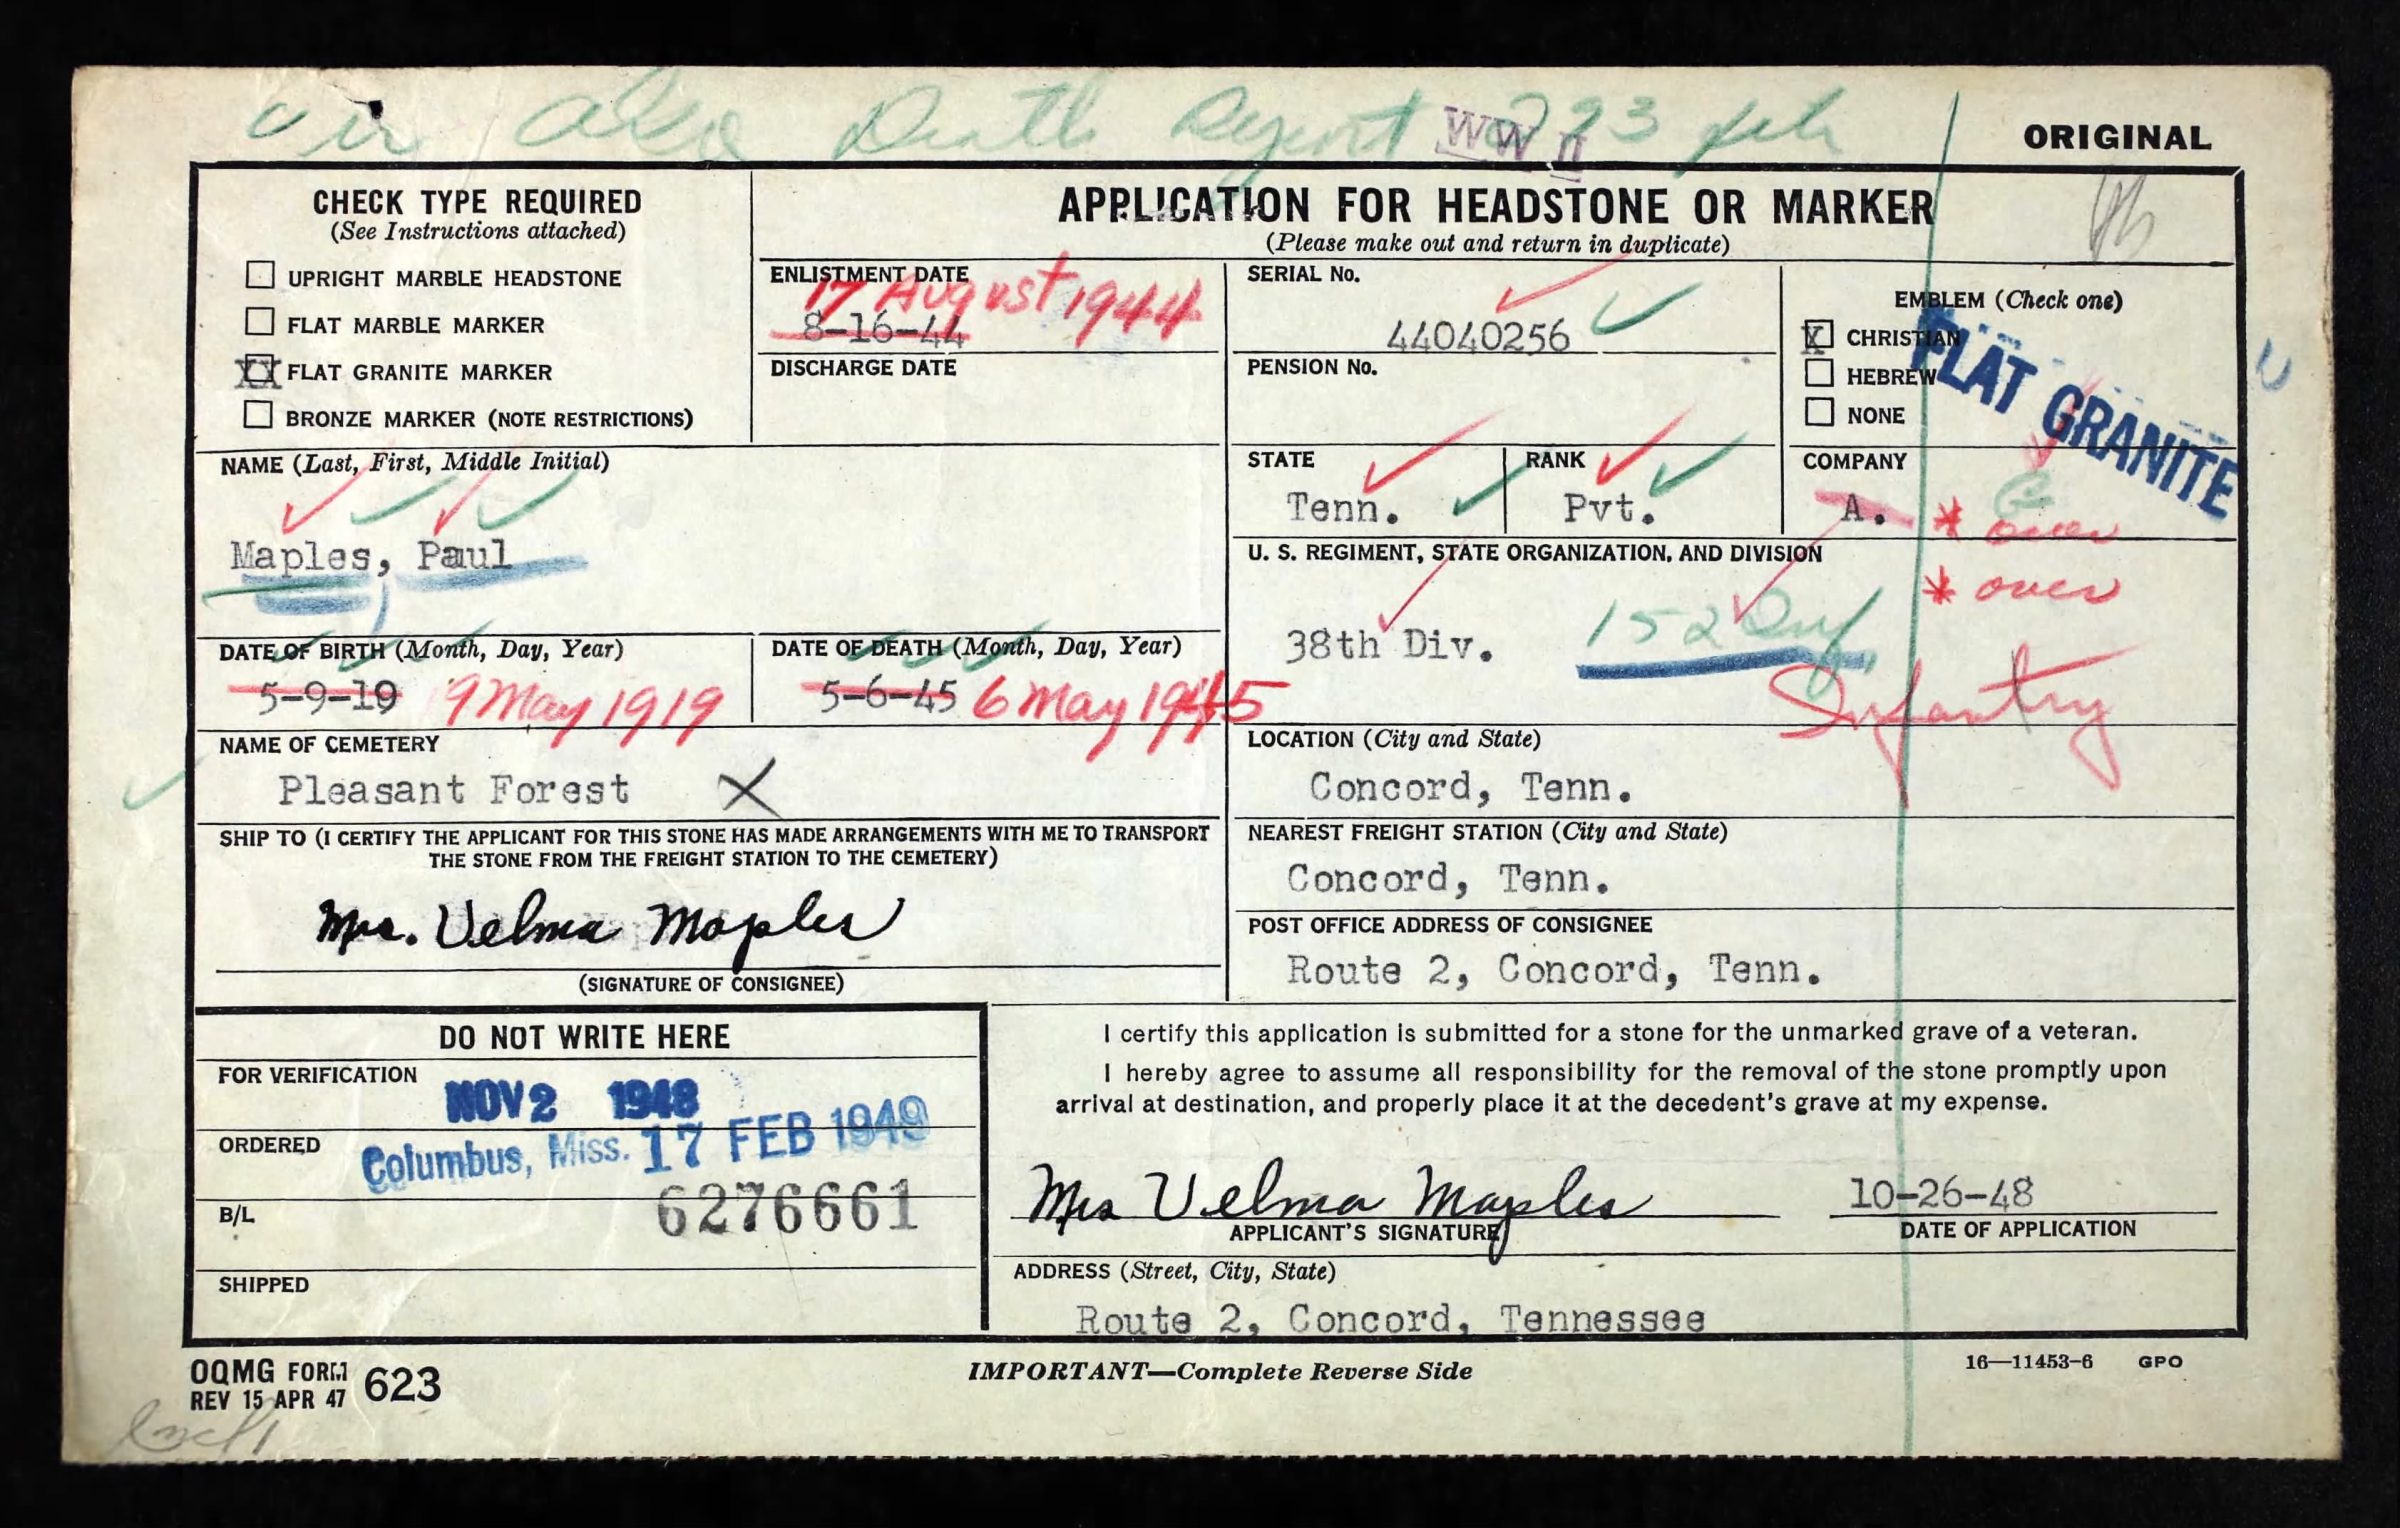 Death Report 23 feb
WW II
ORIGINAL
CHECK TYPE REQUIRED
(See Instructions attached)
UPRIGHT MARBLE HEADSTONE
FLAT MARBLE MARKER
XX FLAT GRANITE MARKER
BRONZE MARKER (NOTE RESTRICTIONS)
APPLICATION FOR HEADSTONE OR MARKER
(Please make out and return in duplicate)
ENLISTMENT DATE
17 August 1944
8-16-44
DISCHARGE DATE
SERIAL No.
44040256
PENSION No.
EMBLEM (Check one)
X CHRISTIAN
HEBREW
NONE
FLAT GRANITE
NAME (Last, First, Middle Initial)
Maples, Paul
STATE
Tenn.
RANK
Pvt.
COMPANY
A. * over
U. S. REGIMENT, STATE ORGANIZATION, AND DIVISION
* over
38th Div. 152 Inf
Infantry
DATE OF BIRTH (Month, Day, Year)
5-9-19 9 May 1919
DATE OF DEATH (Month, Day, Year)
5-6-45 6 May 1945
NAME OF CEMETERY
Pleasant Forest X
LOCATION (City and State)
Concord, Tenn.
SHIP TO (I CERTIFY THE APPLICANT FOR THIS STONE HAS MADE ARRANGEMENTS WITH ME TO TRANSPORT
THE STONE FROM THE FREIGHT STATION TO THE CEMETERY)
Mrs. Velma Maples
(SIGNATURE OF CONSIGNEE)
NEAREST FREIGHT STATION (City and State)
Concord, Tenn.
POST OFFICE ADDRESS OF CONSIGNEE
Route 2, Concord, Tenn.
DO NOT WRITE HERE
FOR VERIFICATION
NOV 2 1948
ORDERED
Columbus, Miss. 17 FEB 1949
B/L
6276661
SHIPPED
I certify this application is submitted for a stone for the unmarked grave of a veteran.
I hereby agree to assume all responsibility for the removal of the stone promptly upon
arrival at destination, and properly place it at the decedent's grave at my expense.
Mrs Velma Maples
APPLICANT'S SIGNATURE
10-26-48
DATE OF APPLICATION
ADDRESS (Street, City, State)
Route 2, Concord, Tennessee
OQMG FORM 623
REV 15 APR 47
IMPORTANT—Complete Reverse Side
16—11453-6 GPO